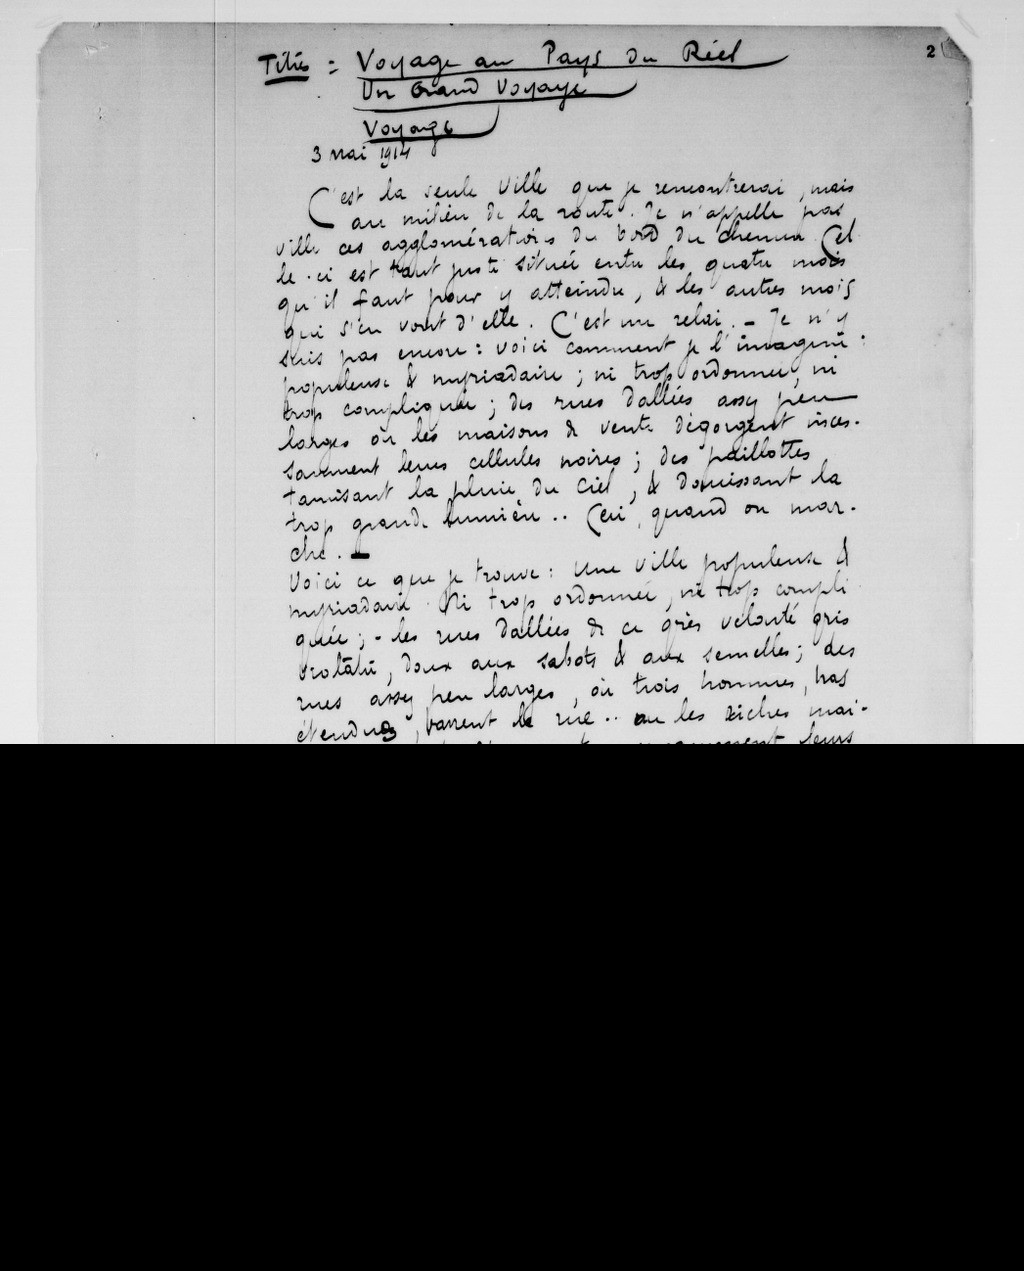 2
Titres : Voyage au Pays du Réel
Un Grand Voyage
Voyage
3 mai 1914
C'est la seule ville que je rencontrerai, mais
au milieu de la route. Je n'appelle pas
ville ces agglomérations du bord du chemin. Cel
le-ci est tout juste située entre les quatre mois
qu'il faut pour y atteindre, & les autres mois
qui s'en vont d'elle. C'est un relai. – Je n'y
suis pas encore : voici comment je l'imagine :
populeuse & myriadaire ; ni trop ordonnée, ni
trop compliquée ; des rues dallées assez peu
larges où les maisons de vente dégorgent inces-
samment leurs cellules noires ; des paillottes
tamisant la pluie du Ciel, & adoucissant la
trop grande lumière .. Ceci, quand on mar-
che. –
Voici ce que je trouve : une ville populeuse &
myriadaire. Ni trop ordonnée, ni trop compli
quée ; - les rues dallées de ce grès velouté gris
violâtre, doux aux sabots & aux semelles ; des
rues assez peu larges, où trois hommes, bras
étendus, barrent la rue .. où les riches mai-
leurs